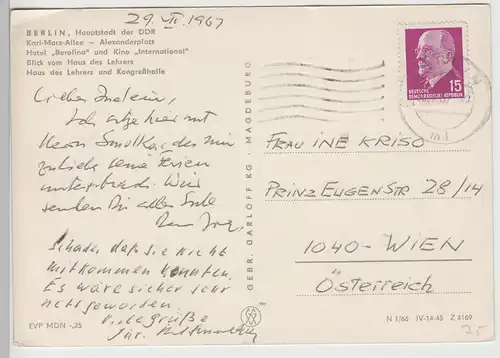 29. VII. 1967
BERLIN, Hauptstadt der DDR
Karl-Marx-Allee – Alexanderplatz
Hotel „Berolina" und Kino „International"
Blick vom Haus des Lehrers
Haus des Lehrers und Kongreßhalle
Ich sitze hier mit
Herrn Smolka, der mir
zuliebe seine Ferien
unterbrach. Wir
senden Dir alles Gute
Schade, daß Sie nicht
mitkommen konnten.
Es wäre sicher sehr
nett geworden.
Viele Grüße
EVP MDN -,25
GEBR. GARLOFF KG · MAGDEBURG
15
DEUTSCHE
DEMOKRATISCHE REPUBLIK
FRAU INE KRISO
PRINZ EUGENSTR 28/14
1040-WIEN
Österreich
N 1/66 IV-14-45 Z 4169
25